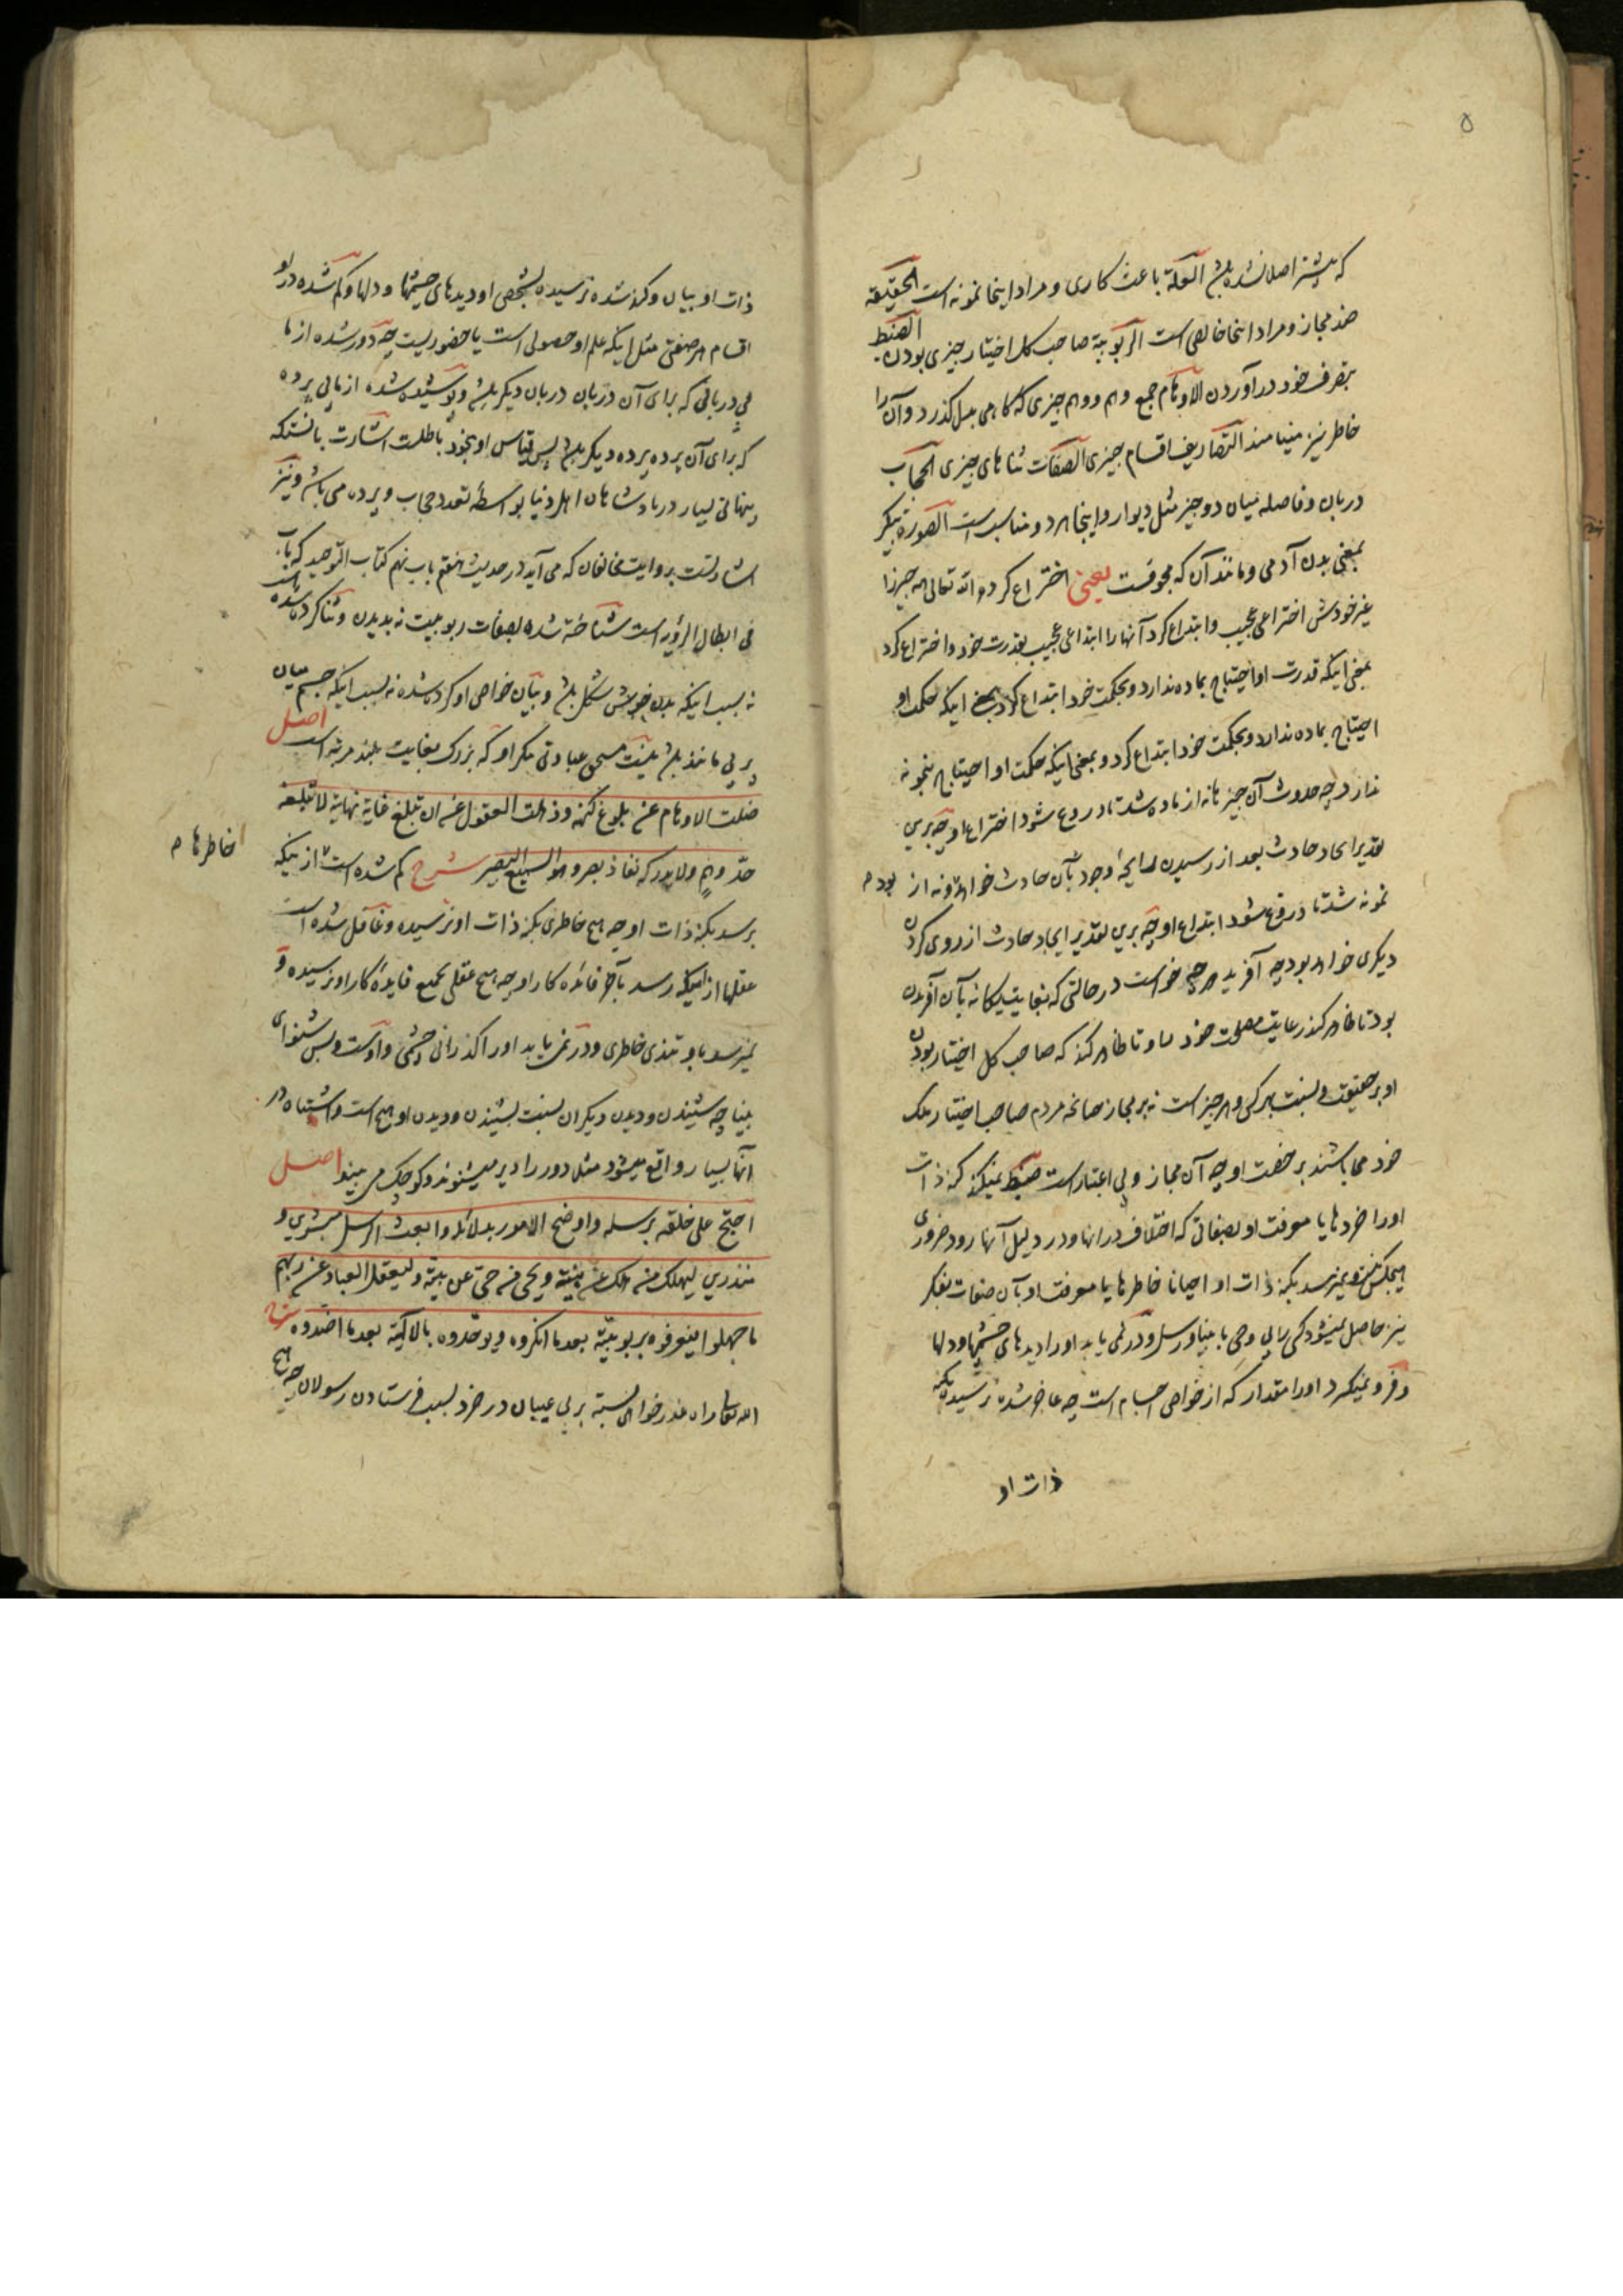 ۵
که پیشتر اصلا نشده باشد العلة باعث کاری و مراد اینجا نمونه است الحقیقه
ضد مجاز و مراد اینجا خالص است الربوبیة صاحب کل اختیار چیزی بودن الضبط
بتصرف خود درآوردن الاوهام جمع وهم و وهم چیزی که گاهی بدل گذرد و آن را
خاطر نیز مینامند التصاریف اقسام چیزی الصفات ثناهای چیزی الحجاب
دربان و فاصله میان دو چیز مثل دیوار و اینجا هر دو مناسب است الصورة پیکر
بمعنی بدن آدمی و مانند آن که مجوفست یعنی اختراع کرده الله تعالی همه چیز را
غیر خودش اختراعی عجیب و ابتداع کرد آنها را ابتداعی عجیب بقدرت خود و اختراع کرد
بمعنی اینکه قدرت او احتیاج بماده ندارد و بحکمت خود ابتداع کرد بمعنی اینکه حکمت او
احتیاج بماده ندارد و بحکمت خود ابتداع کرد و بمعنی اینکه حکمت او احتیاج بنمونه
ندارد چه حدوث آن چیزها نه از ماده شد تا دروغ شود اختراع او چه برین
تقدیر ایجاد حادث بعد از رسیدن رایحهٔ وجود بآن حادث خواهد بود و نه از
نمونه شد تا دروغ شود ابتداع او چه برین تقدیر ایجاد حادث از روی کردن
دیگری خواهد بود چه آفرید هر چه خواست در حالتی که بغایت یگانه بآن آفریدن
بود تا ظاهر کند رعایت مصلحت خود را و تا ظاهر کند که صاحب کل اختیار بودن
او بر حقیقت و نسبت بهر کس و هر چیز است نه بر مجاز چنانچه مردم صاحب اختیار ملک
خود می باشند بر خصت او چه آن مجاز و بی اعتبار است ضبط نمیکند کنه ذات
او را خردها یا معرفت او بصفاتی که اختلاف در آنها و در دلیل آنها رود ضروری
هیچکس نیست و نمیرسد بکنه ذات او احیانا خاطرها یا معرفت او بآن صفات بفکر
نیز حاصل نمیشود کسی را بی وحی یا بینا و رسل و در نمی یابد او را دیدهای چشمها و دلها
و فرو نمیگیرد او را مقدار که از خواص اجسام است چه عاجز شده نرسیده بکنه
ذات او
ذات او بیان و کند شده نرسیده بشخص او دیدهای چشمها و دلها و گم شده در او
اقسام هر صفتی مثل اینکه علم او حصولی است یا حضوریست چه دور شده از ما
بی دربانی که برای آن دربان دربان دیگر باشد و پوشیده شده از ما بی پرده
که برای آن پرده پرده دیگر باشد پس قیاس او بخود باطلست اشارت بآنستکه
پنهانی بسیار در پادشاهان اهل دنیا بواسطهٔ تعدد حجاب و پرده می باشد و نیز
اشارتست بروایت مخالفان که می آید در حدیث هفتم باب نهم کتاب التوحید که باب
فی ابطال الرؤیه است شناخته شده بصفات ربوبیت نه بدیدن و ثنا کرده شده
نه بسبب اینکه بدن خوبش شکل باشد و بیان خواص او کرده شده نه بسبب اینکه جسم میان
پر بی مانند باشد نیست مستحق عبادتی مگر او که بزرگ بغایت بلند مرتبه است اصل
ضلت الاوهام عن بلوغ کنهه و ذهلت العقول عن ان تبلغ غایة نهایته لا تبلغه
حدّ وهم و لا یدرکه نفاذ بصر و هو السمیع البصیر شرح گم شده است از اینکه
خاطرها م
برسد بکنه ذات او چه هیچ خاطری بکنه ذات او نرسیده و غافل شده است
عقلها از اینکه رسد بآخر فائده کار او چه هیچ عقلی بجمیع فایدهٔ کار او نرسیده و
نمیرسد باو تندی خاطری و در نمی یابد او را گذرانی چشمی و اوست و بس شنوای
بینا چه شنیدن و دیدن دیگران بنسبت بشنیدن و دیدن او هیچ است و اشتباه در
آنها بسیار واقع میشود مثلا دور را دیر میشنوند و کوچک می بینند اصل
احتج علی خلقه برسله و اوضح الامور بدلائله و ابتعث الرسل مبشرین و
منذرین لیهلک من هلک عن بینة و یحیی من حی عن بینة و لیعقل العباد عن ربهم
ما جهلوا فیعرفوه بربوبیته بعد ما انکروه و یوحدوه بالالهیة بعد ما اضدوه شرح
الله تعالی راه عذر خواهی بسته بر بی عیبان در خرد بسبب فرستادن رسولان چه هیچ